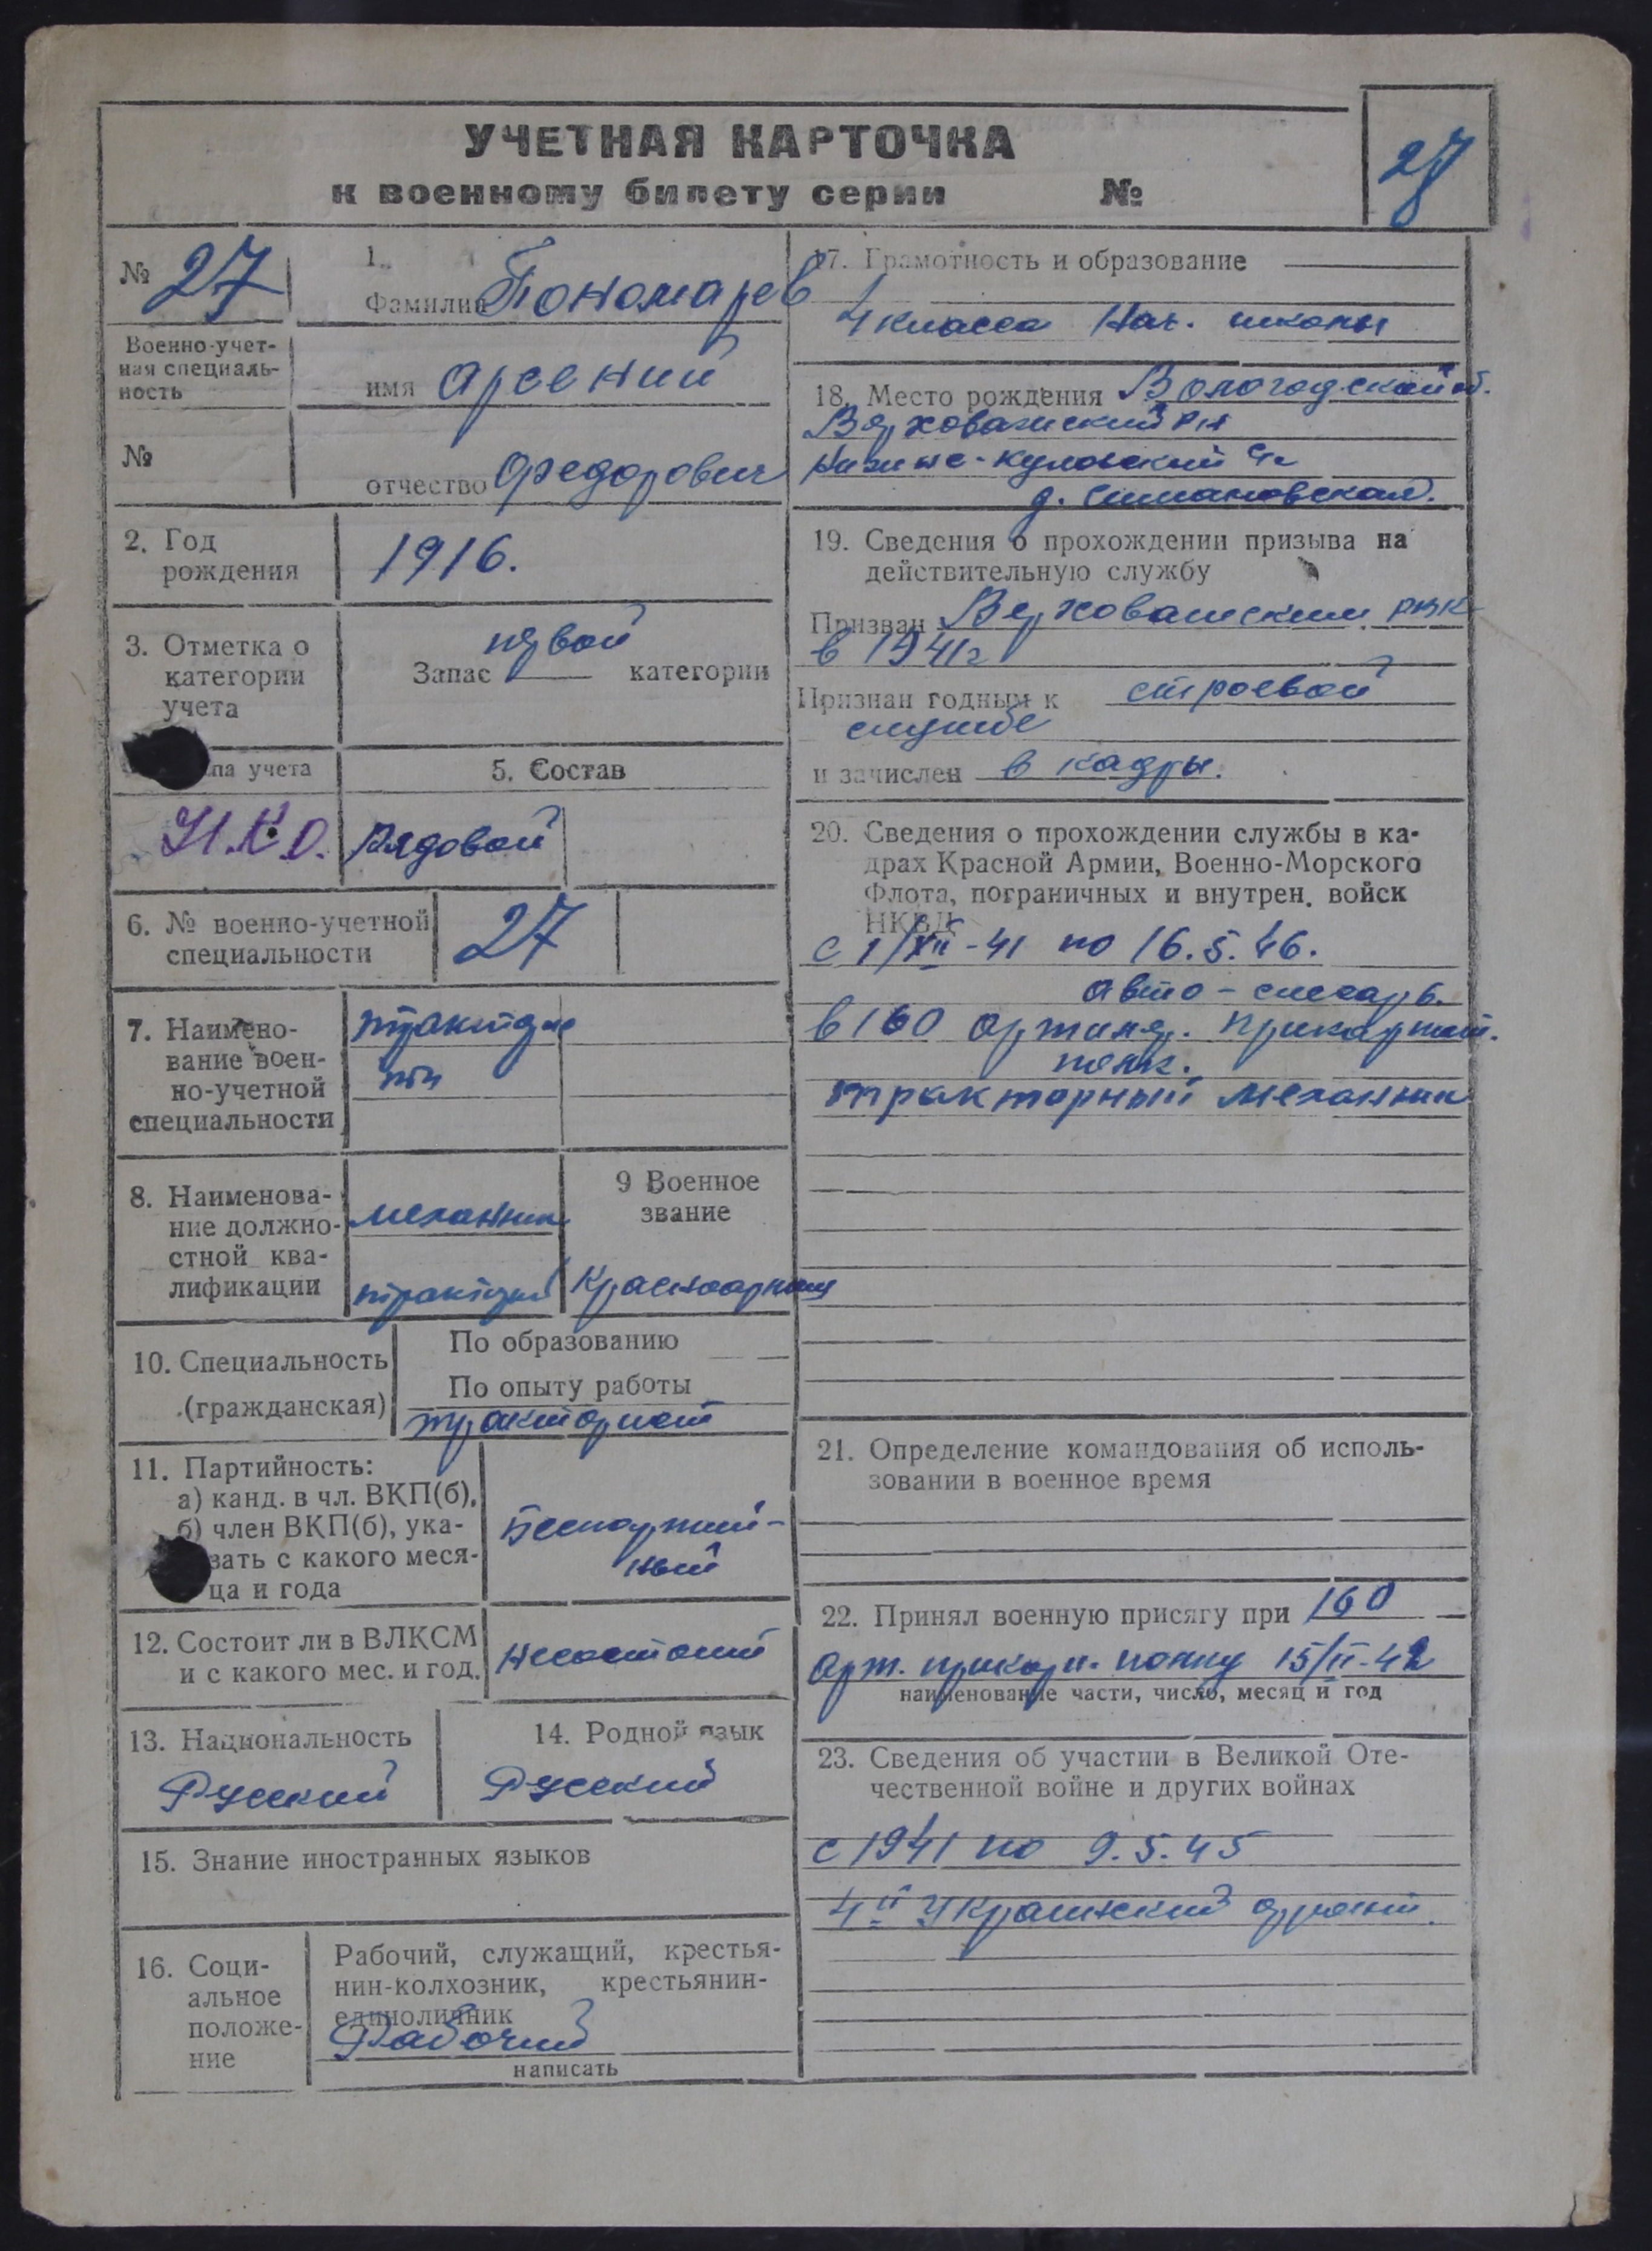 УЧЕТНАЯ КАРТОЧКА
к военному билету серии №
27
№ 27
1.
Фамилия Пономарев
Военно-учет-
ная специаль-
ность
имя Арсений
№
отчество Федорович
2. Год
рождения
1916.
3. Отметка о
категории
учета
Запас первой категории
па учета
5. Состав
Н.К.О.
Рядовой
6. № военно-учетной
специальности
27
7. Наимено-
вание воен-
но-учетной
специальности
8. Наименова-
ние должно-
стной ква-
лификации
механик
9 Военное
звание
Красноармеец
10. Специальность
(гражданская)
По образованию
По опыту работы
тракторист
11. Партийность:
а) канд. в чл. ВКП(б),
б) член ВКП(б), ука-
зать с какого меся-
ца и года
Беспартий-
ный
12. Состоит ли в ВЛКСМ
и с какого мес. и год.
несостоит
13. Национальность
Русский
14. Родной язык
Русский
15. Знание иностранных языков
16. Соци-
альное
положе-
ние
Рабочий, служащий, крестья-
нин-колхозник, крестьянин-
единоличник
Рабочий
написать
17. Грамотность и образование
4 класса Нач. школы
18. Место рождения Вологодской об.
Верховажский р-н
Нижне-Кулойский с/с
д. Симановская.
19. Сведения о прохождении призыва на
действительную службу
Призван Верховажским РВК
в 1941г
Признан годным к строевой
службе
и зачислен в кадры.
20. Сведения о прохождении службы в ка-
драх Красной Армии, Военно-Морского
Флота, пограничных и внутрен. войск
НКВД
с 1/XII-41 по 16.5.46.
авто-слесарь
в 160 артилер.
полк.
тракторный механик
21. Определение командования об исполь-
зовании в военное время
22. Принял военную присягу при 160
арт. полку 15/II-42
наименование части, число, месяц и год
23. Сведения об участии в Великой Оте-
чественной войне и других войнах
с 1941 по 9.5.45
4й Украинский фронт.